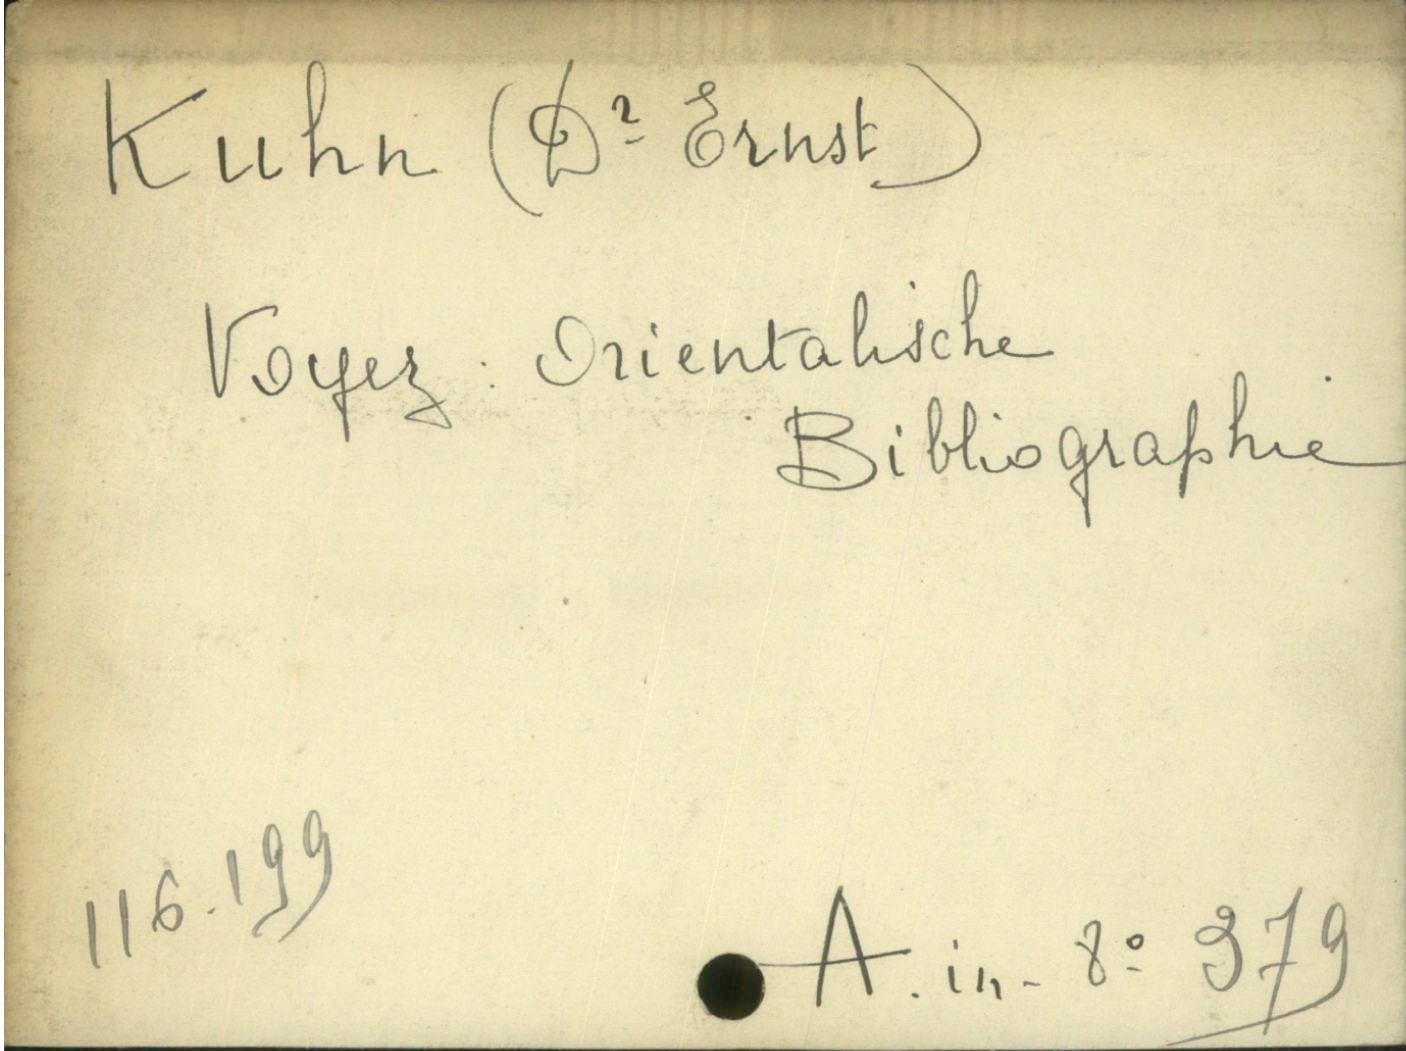 Kuhn (Dr Ernst)
Voyez : Orientalische
Bibliographie
116.199
A. in-8º 379